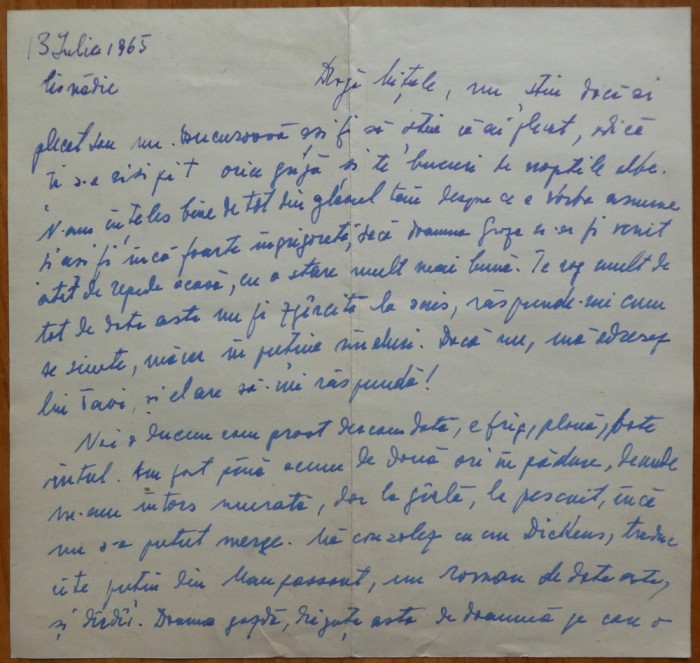 13 Iulie 1965
Cisnădie
Dragă Lițule, nu știu dacă ai
plecat sau nu. Bucuroasă aș fi să știu că ai plecat, adică
ți s-a risipit orice grijă și te bucuri de nopțile albe.
N-am înțeles bine de tot din glasul tău despre ce e vorba anume
și aș fi încă foarte îngrijorată, dacă doamna n-ar fi venit
atît de repede acasă, cu o stare mult mai bună. Te rog mult de
tot de data asta nu fi zgîrcită la scris, răspunde-mi cum
se simte, măcar în puține rînduri. Dacă nu, mă adresez
lui Tavi, și el are să-mi răspundă!
Noi o ducem cam prost deocamdată, e frig, plouă, bate
vîntul. Am fost pînă acum de două ori în pădure, de unde
m-am întors murată, dar la gîrlă, la pescuit, încă
nu s-a putut merge. Mă consolez cu un Dickens, traduc
cîte puțin din Maupassant, un roman de data asta,
și dîrdîi. Doamna gazdă, drăguța asta de doamnă pe care o